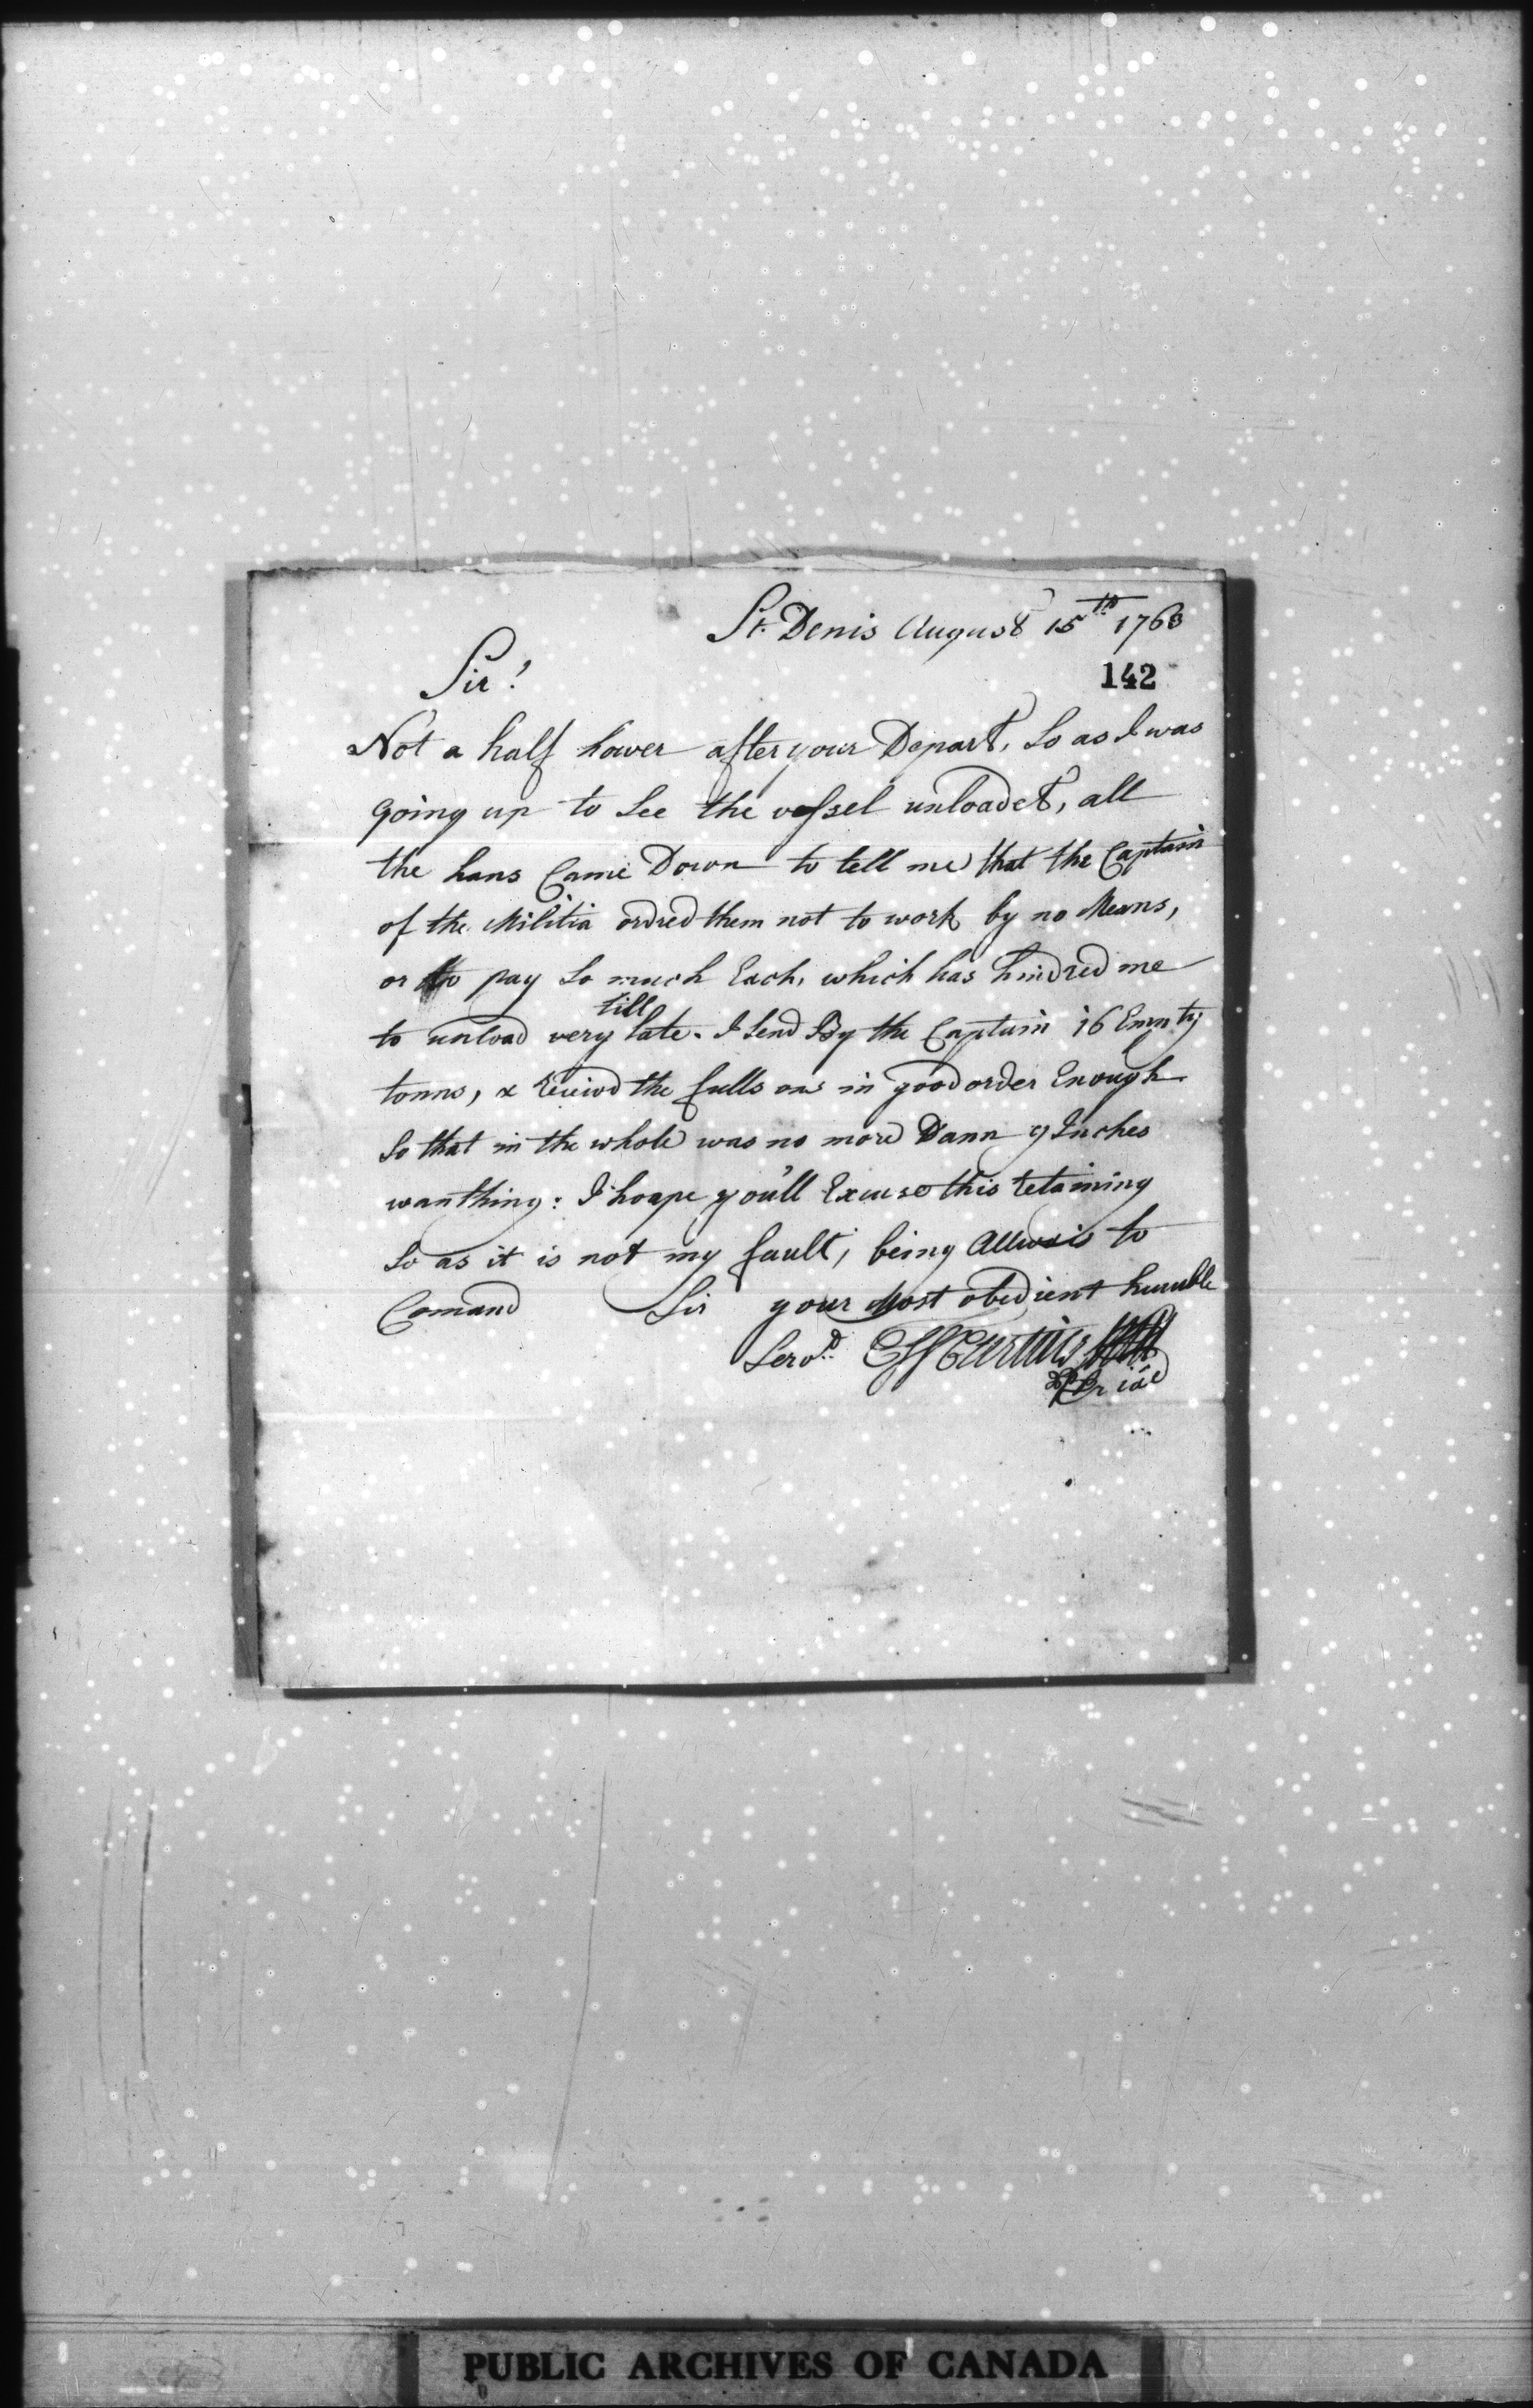 St. Denis August 15th 1763
142
Sir!
Not a half hower after your Depart, So as I was
going up to See the vessel unloadet, all
the hans Came Down to tell me that the Captain
of the Militia ordred them not to work by no Means,
or to pay So much Each, which has hindred me
till
to unload very late. I Send By the Captain 16 Empty
tonns, & the fulls ons in good order Enough
So that in the whole was no more Dann 9 Inches
wanthing: I hoape you'll Excuse this retaining
So as it is not my fault, being Allwais to
Comand Sir your Most obedient humble
Servt
PUBLIC ARCHIVES OF CANADA